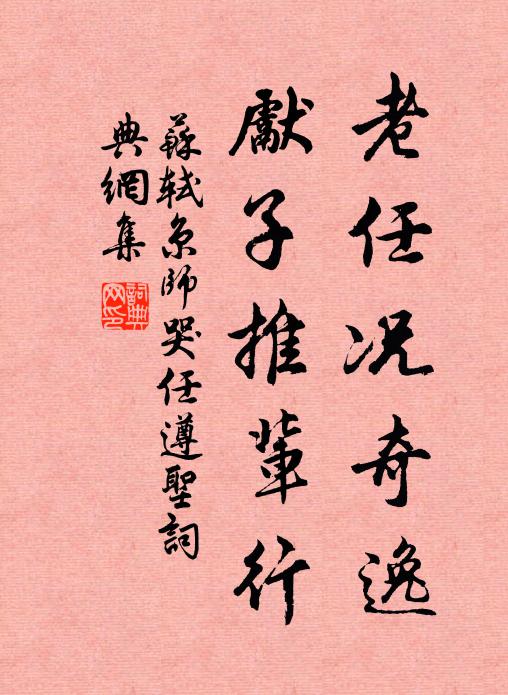 老任况奇逸
獻子推輩行
蘇軾京師哭任遵聖詞
典網集
詞典
网印